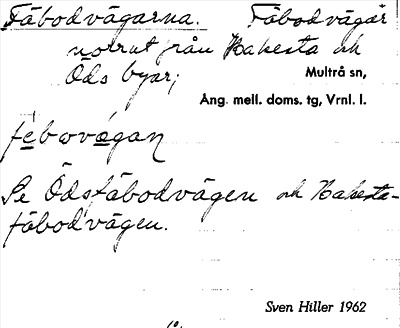 Fäbodvägarna. Fäbodvägar
norrut från Hakesta och
Öds byar;
Multrå sn,
Ång. mell. doms. tg, Vrnl. l.
febovägan
Se Ödsfäbodvägen och Hakesta-
fäbodvägen.
Sven Hiller 1962